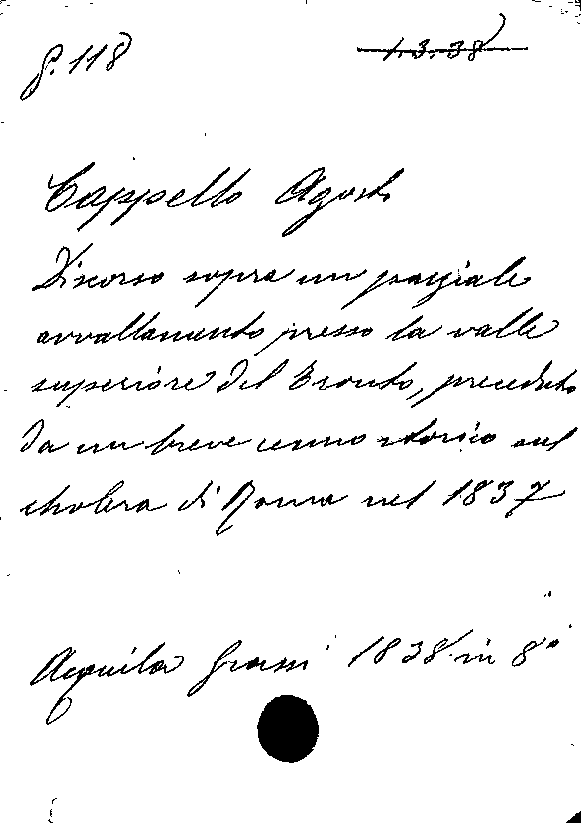 g. 118
1.3.38
Cappello Agosto
Discorso sopra un parziale
avvallamento presso la valle
superiore del Tronto, preceduto
da un breve cenno storico sul
cholera di Roma nel 1837
Aquila Grassi 1838 in 8°